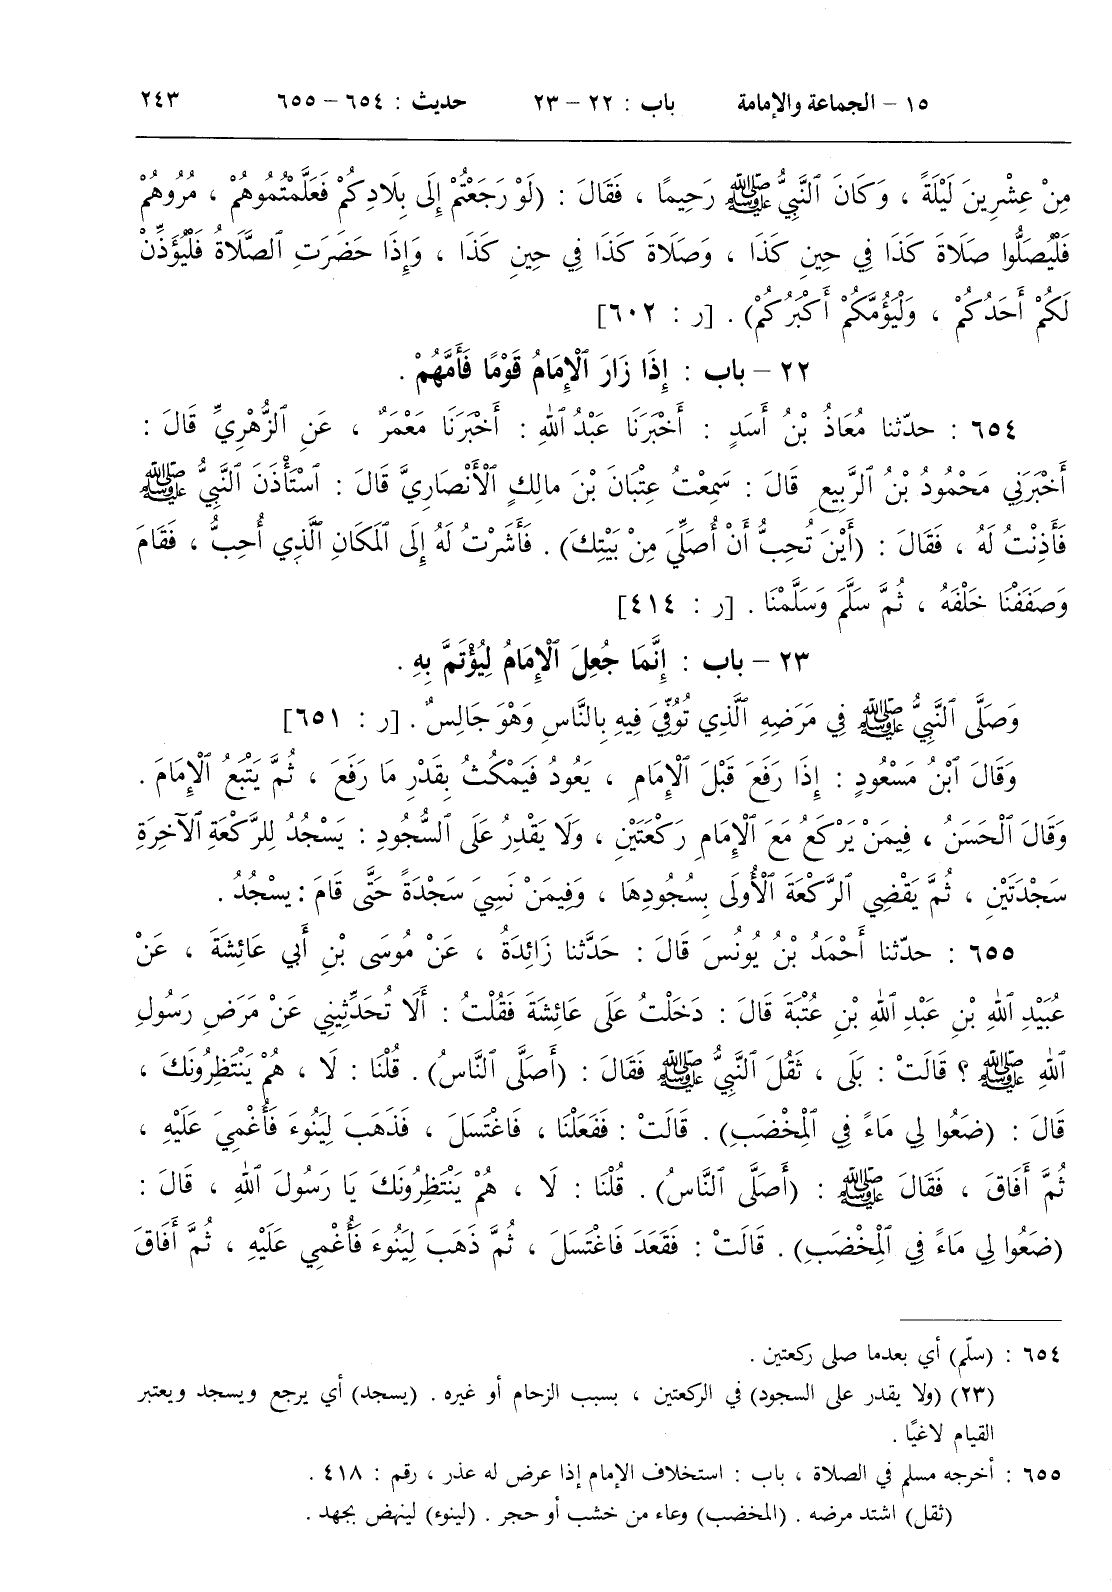 ١٥ – الجماعة والإمامة باب : ٢٢ – ٢٣ حديث : ٦٥٤ – ٦٥٥ ٢٤٣
مِنْ عِشْرِينَ لَيْلَةً ، وَكَانَ ٱلنَّبِيُّ ﷺ رَحِيمًا ، فَقَالَ : (لَوْ رَجَعْتُمْ إِلَى بِلَادِكُمْ فَعَلَّمْتُمُوهُمْ ، مُرُوهُمْ
فَلْيُصَلُّوا صَلَاةَ كَذَا فِي حِينِ كَذَا ، وَصَلَاةَ كَذَا فِي حِينِ كَذَا ، وَإِذَا حَضَرَتِ ٱلصَّلَاةُ فَلْيُؤَذِّنْ
لَكُمْ أَحَدُكُمْ ، وَلْيَؤُمَّكُمْ أَكْبَرُكُمْ) . [ر : ٦٠٢]
٢٢ – باب : إِذَا زَارَ ٱلْإِمَامُ قَوْمًا فَأَمَّهُمْ .
٦٥٤ : حدّثنا مُعَاذُ بْنُ أَسَدٍ : أَخْبَرَنَا عَبْدُ ٱللهِ : أَخْبَرَنَا مَعْمَرٌ ، عَنِ ٱلزُّهْرِيِّ قَالَ :
أَخْبَرَنِي مَحْمُودُ بْنُ ٱلرَّبِيعِ قَالَ : سَمِعْتُ عِتْبَانَ بْنَ مالِكٍ ٱلْأَنْصَارِيَّ قَالَ : ٱسْتَأْذَنَ ٱلنَّبِيُّ ﷺ
فَأَذِنْتُ لَهُ ، فَقَالَ : (أَيْنَ تُحِبُّ أَنْ أُصَلِّيَ مِنْ بَيْتِكَ) . فَأَشَرْتُ لَهُ إِلَى ٱلْمَكَانِ ٱلَّذِي أُحِبُّ ، فَقَامَ
وَصَفَفْنَا خَلْفَهُ ، ثُمَّ سَلَّمَ وَسَلَّمْنَا . [ر : ٤١٤]
٢٣ – باب : إِنَّمَا جُعِلَ ٱلْإِمَامُ لِيُؤْتَمَّ بِهِ .
وَصَلَّى ٱلنَّبِيُّ ﷺ فِي مَرَضِهِ ٱلَّذِي تُوُفِّيَ فِيهِ بِالنَّاسِ وَهْوَ جَالِسٌ . [ر : ٦٥١]
وَقَالَ ٱبْنُ مَسْعُودٍ : إِذَا رَفَعَ قَبْلَ ٱلْإِمَامِ ، يَعُودُ فَيَمْكُثُ بِقَدْرِ مَا رَفَعَ ، ثُمَّ يَتْبَعُ ٱلْإِمَامَ .
وَقَالَ ٱلْحَسَنُ ، فِيمَنْ يَرْكَعُ مَعَ ٱلْإِمَامِ رَكْعَتَيْنِ ، وَلَا يَقْدِرُ عَلَى ٱلسُّجُودِ : يَسْجُدُ لِلرَّكْعَةِ ٱلْآخِرَةِ
سَجْدَتَيْنِ ، ثُمَّ يَقْضِي ٱلرَّكْعَةَ ٱلْأُولَى بِسُجُودِهَا ، وَفِيمَنْ نَسِيَ سَجْدَةً حَتَّى قَامَ : يَسْجُدُ .
٦٥٥ : حدّثنا أَحْمَدُ بْنُ يُونُسَ قَالَ : حَدَّثَنا زَائِدَةُ ، عَنْ مُوسَى بْنِ أَبِي عَائِشَةَ ، عَنْ
عُبَيْدِ ٱللهِ بْنِ عَبْدِ ٱللهِ بْنِ عُتْبَةَ قَالَ : دَخَلْتُ عَلَى عَائِشَةَ فَقُلْتُ : أَلَا تُحَدِّثِينِي عَنْ مَرَضِ رَسُولِ
ٱللهِ ﷺ ؟ قَالَتْ : بَلَى ، ثَقُلَ ٱلنَّبِيُّ ﷺ فَقَالَ : (أَصَلَّى ٱلنَّاسُ) . قُلْنَا : لَا ، هُمْ يَنْتَظِرُونَكَ ،
قَالَ : (ضَعُوا لِي مَاءً فِي ٱلْمِخْضَبِ) . قَالَتْ : فَفَعَلْنَا ، فَاغْتَسَلَ ، فَذَهَبَ لِيَنُوءَ فَأُغْمِيَ عَلَيْهِ ،
ثُمَّ أَفَاقَ ، فَقَالَ ﷺ : (أَصَلَّى ٱلنَّاسُ) . قُلْنَا : لَا ، هُمْ يَنْتَظِرُونَكَ يَا رَسُولَ ٱللهِ ، قَالَ :
(ضَعُوا لِي مَاءً فِي ٱلْمِخْضَبِ) . قَالَتْ : فَقَعَدَ فَاغْتَسَلَ ، ثُمَّ ذَهَبَ لِيَنُوءَ فَأُغْمِيَ عَلَيْهِ ، ثُمَّ أَفَاقَ
٦٥٤ : (سلّم) أي بعدما صلى ركعتين .
(٢٣) (ولا يقدر على السجود) في الركعتين ، بسبب الزحام أو غيره . (يسجد) أي يرجع ويسجد ويعتبر
القيام لاغيًا .
٦٥٥ : أخرجه مسلم في الصلاة ، باب : استخلاف الإمام إذا عرض له عذر ، رقم : ٤١٨ .
(ثقل) اشتد مرضه . (المخضب) وعاء من خشب أو حجر . (لينوء) لينهض بجهد .